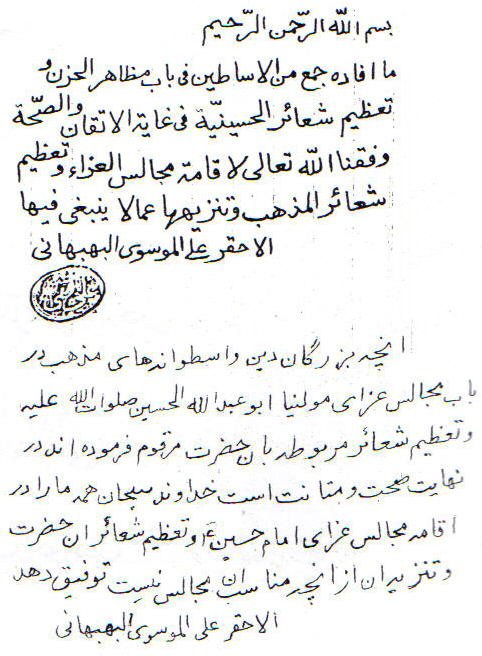 بسم الله الرّحمن الرّحيم
ما افاده جمع من الاساطين فى باب مظاهر الحزن و
تعظيم شعائر الحسينيّة فى غاية الاتقان والصّحّة
وفقنا الله تعالى لاقامة مجالس العزاء وتعظيم
شعائر المذهب وتنزيهها عمالا ينبغى فيها
الاحقر علّى الموسوى البهبهانى
انچه بزرگان دين واسطوانه‌هاى مذهب در
باب مجالس عزاى مولنيا ابوعبدالله الحسين صلوات الله عليه
وتعظيم شعائر مربوطه بان حضرت مرقوم فرموده اند در
نهايت صحت ومتانت است خداوند سبحان همه مارا در
اقامه مجالس عزاى امام حسين ع وتعظيم شعائر ان حضرت
وتنزيه ان از انچه مناسب ان مجالس نيست توفيق دهد
الاحقر على الموسوى البهبهانى